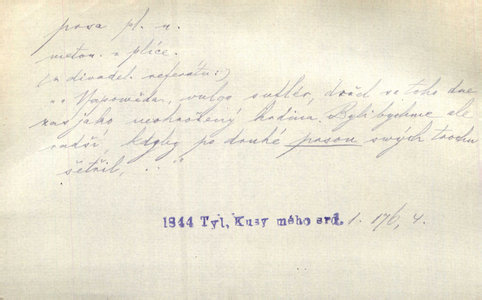 prsa pl. n.
meton. = plíce.
(z divadel. referátu:)
„Napověda, vulgo suflér, držel se toho dne
zas jako neohrožený hrdina. Byli bychme ale
radši, kdyby po druhé prsou swých trochu
šetřil, ..."
1844 Tyl, Kusy mého srd. 1. 176, 4.